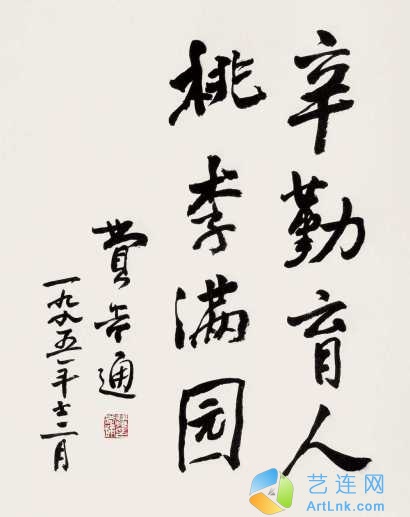 辛勤育人
桃李满园
费孝通
一九九五年十二月
艺连网
ArtLnk.com